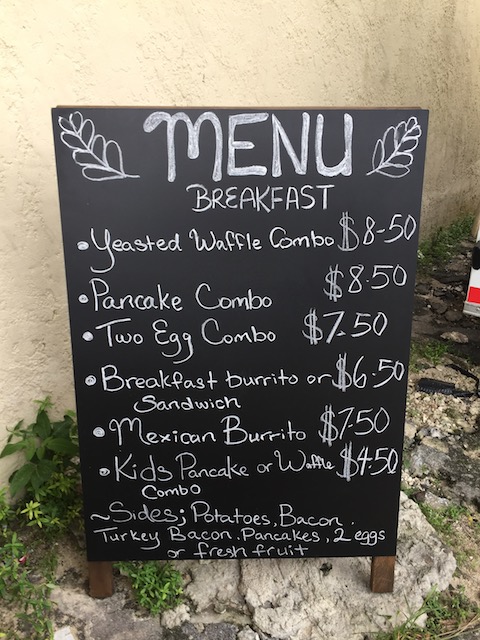 MENU
BREAKFAST
• Yeasted Waffle Combo $8-50
• Pancake Combo $8.50
• Two Egg Combo $7.50
• Breakfast burrito or $6.50
Sandwich
• Mexican Burrito $7.50
• Kids Pancake or Waffle $4.50
Combo
~Sides; Potatoes, Bacon.
Turkey Bacon, Pancakes, 2 eggs
or fresh fruit